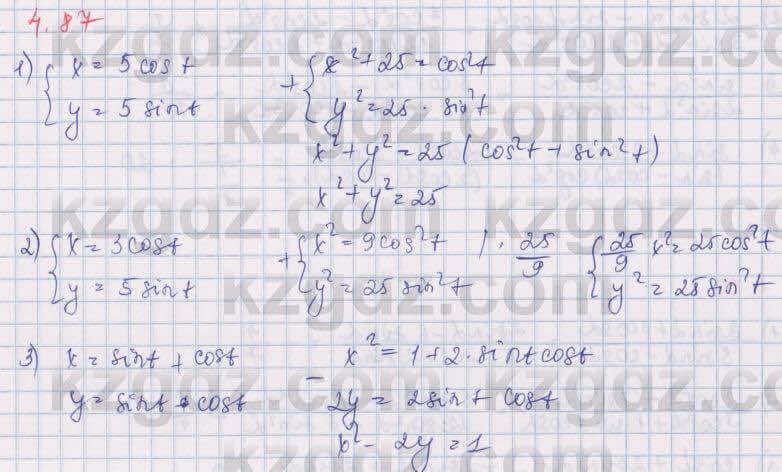 4.87
1) { x = 5 cos t
y = 5 sin t
+ { x² + 25 = cos² t
y² = 25 · sin² t
x² + y² = 25 (cos² t + sin² t)
x² + y² = 25
2) { x = 3 cos t
y = 5 sin t
+ { x² = 9 cos² t | · 25/9
y² = 25 sin² t
{ 25/9 x² = 25 cos² t
y² = 25 sin² t
3) x = sin t + cos t
y = sin t · cos t
− x² = 1 + 2 · sin t cos t
2y = 2 sin t cos t
x² − 2y = 1
kzgdz.com